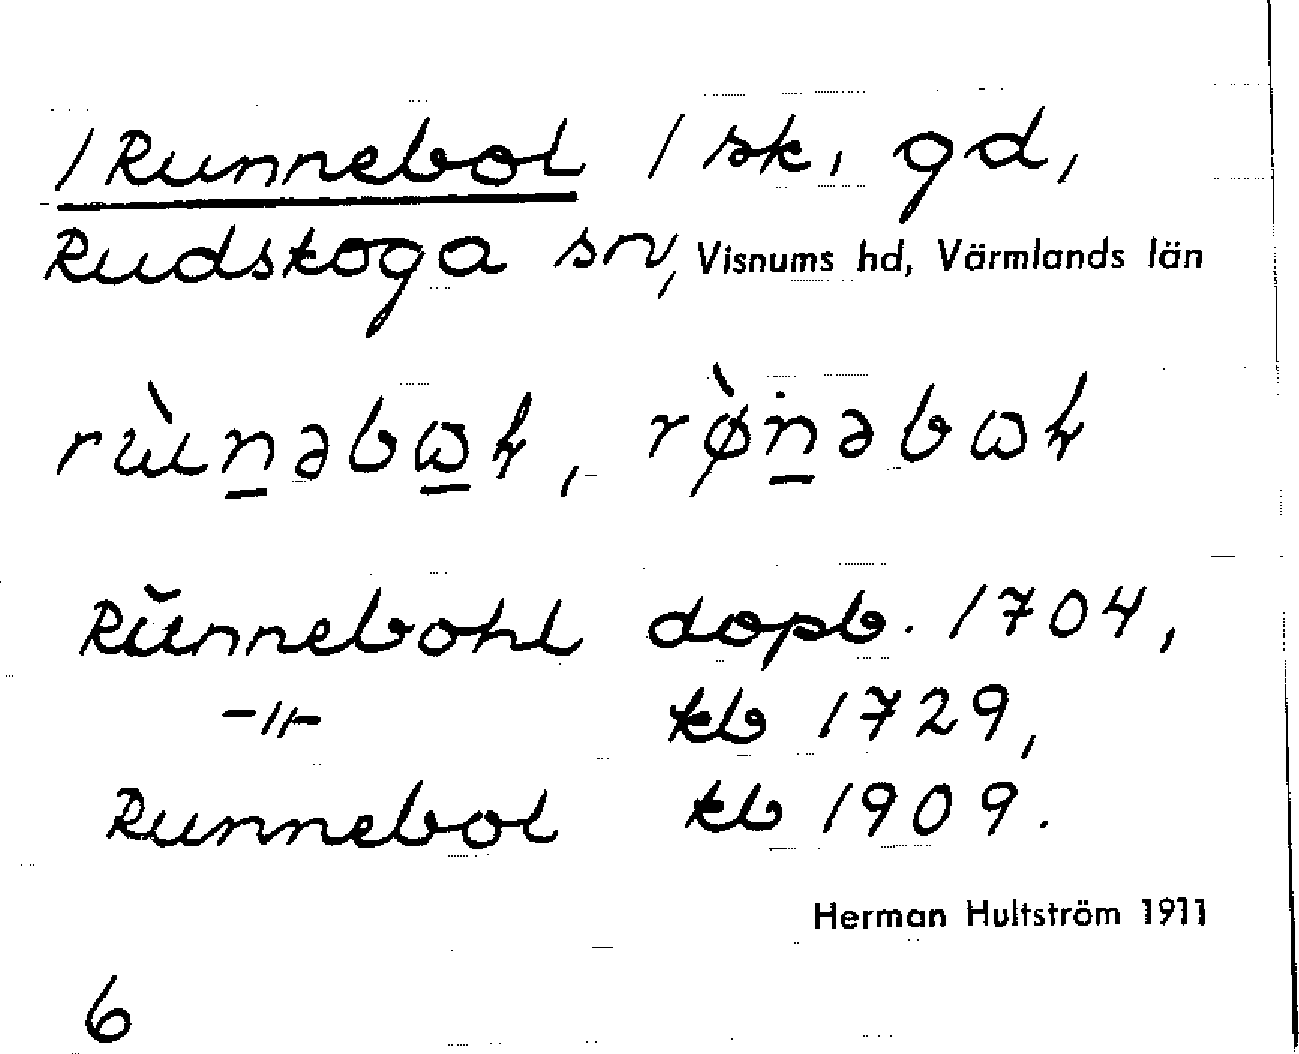 /Runnebol / sk, gd,
Rudskoga sn, Visnums hd, Värmlands län
rùn̲əbω̲ɫ, rø̀n̲əbωɫ
Rŭnnebohl dopb. 1704,
–"– kb 1729,
Runnebol kb 1909.
Herman Hultström 1911
6